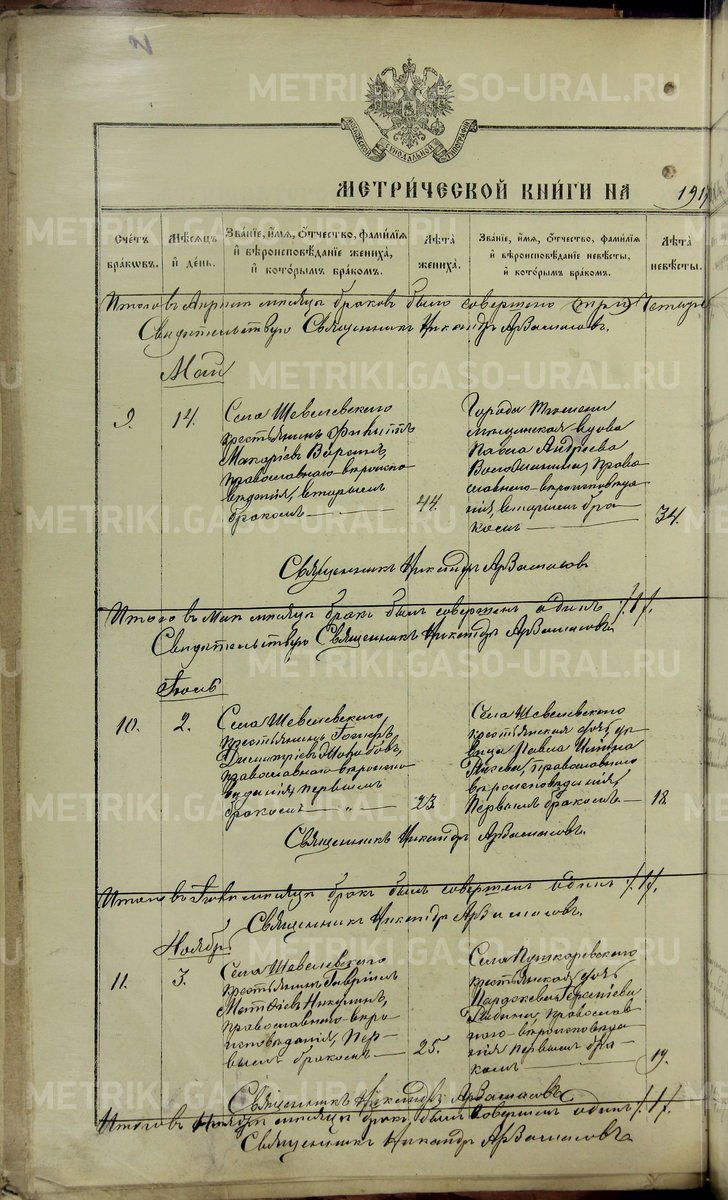 МЕТРИ́ЧЕСКОЙ КНИ́ГИ НА 191
Сче́тъ бра́кѡвъ.
Мѣ́сѧцъ и҆ де́нь.
Зва́нїе, и҆́мѧ, ѻ҆́тчество, фами́лїѧ и҆ вѣроисповѣ́данїе жениха̀, и҆ кото́рымъ бра́комъ.
Лѣ́та жениха̀.
Зва́нїе, и҆́мѧ, ѻ҆́тчество, фами́лїѧ и҆ вѣроисповѣ́данїе невѣ́сты, и҆ кото́рымъ бра́комъ.
Лѣ́та невѣ́сты.
Итого въ Апрѣлѣ мѣсяцѣ браковъ было совершено (три) четыре
Свидѣтельствую Священникъ Никандръ
Май
9.
14.
Села Шевелевского
крестьянинъ Филиппъ
Макаріевъ
православнаго вѣроиспо-
вѣданія, вторымъ
бракомъ
44.
Города Тюмени
мѣщанская вдова
Павла Андреева
право-
славнаго вѣроисповѣда-
нія, вторымъ бра-
комъ
34.
Священникъ Никандръ
Итого въ Маѣ мѣсяцѣ бракъ былъ совершенъ одинъ /1/.
Свидѣтельствую Священникъ Никандръ
10.
2.
Села Шевелевского
крестьянинъ
Димитріевъ
православнаго вѣроиспо-
вѣданія, первымъ
бракомъ — „ —
23
Села Шевелевского
крестьянская дочь, дѣ-
вица Павла
православнаго
вѣроисповѣданія,
первымъ бракомъ —
18
Священникъ Никандръ
Итого въ мѣсяцѣ бракъ былъ совершенъ одинъ /1/.
Священникъ Никандръ
Ноябрь
11.
3.
Села Шевелевского
крестьянинъ Гавріилъ
Матѳіевъ Никулинъ,
православнаго вѣро-
исповѣданія, пер-
вымъ бракомъ —
25.
Села Пушкаревского
крестьянская дочь
Параскева
православ-
наго вѣроисповѣда-
нія первымъ бра-
комъ —
19.
Священникъ Никандръ
Итого въ Ноябрѣ мѣсяцѣ бракъ былъ совершенъ одинъ /1/.
Священникъ Никандръ
METRIKI.GASO-URAL.RU